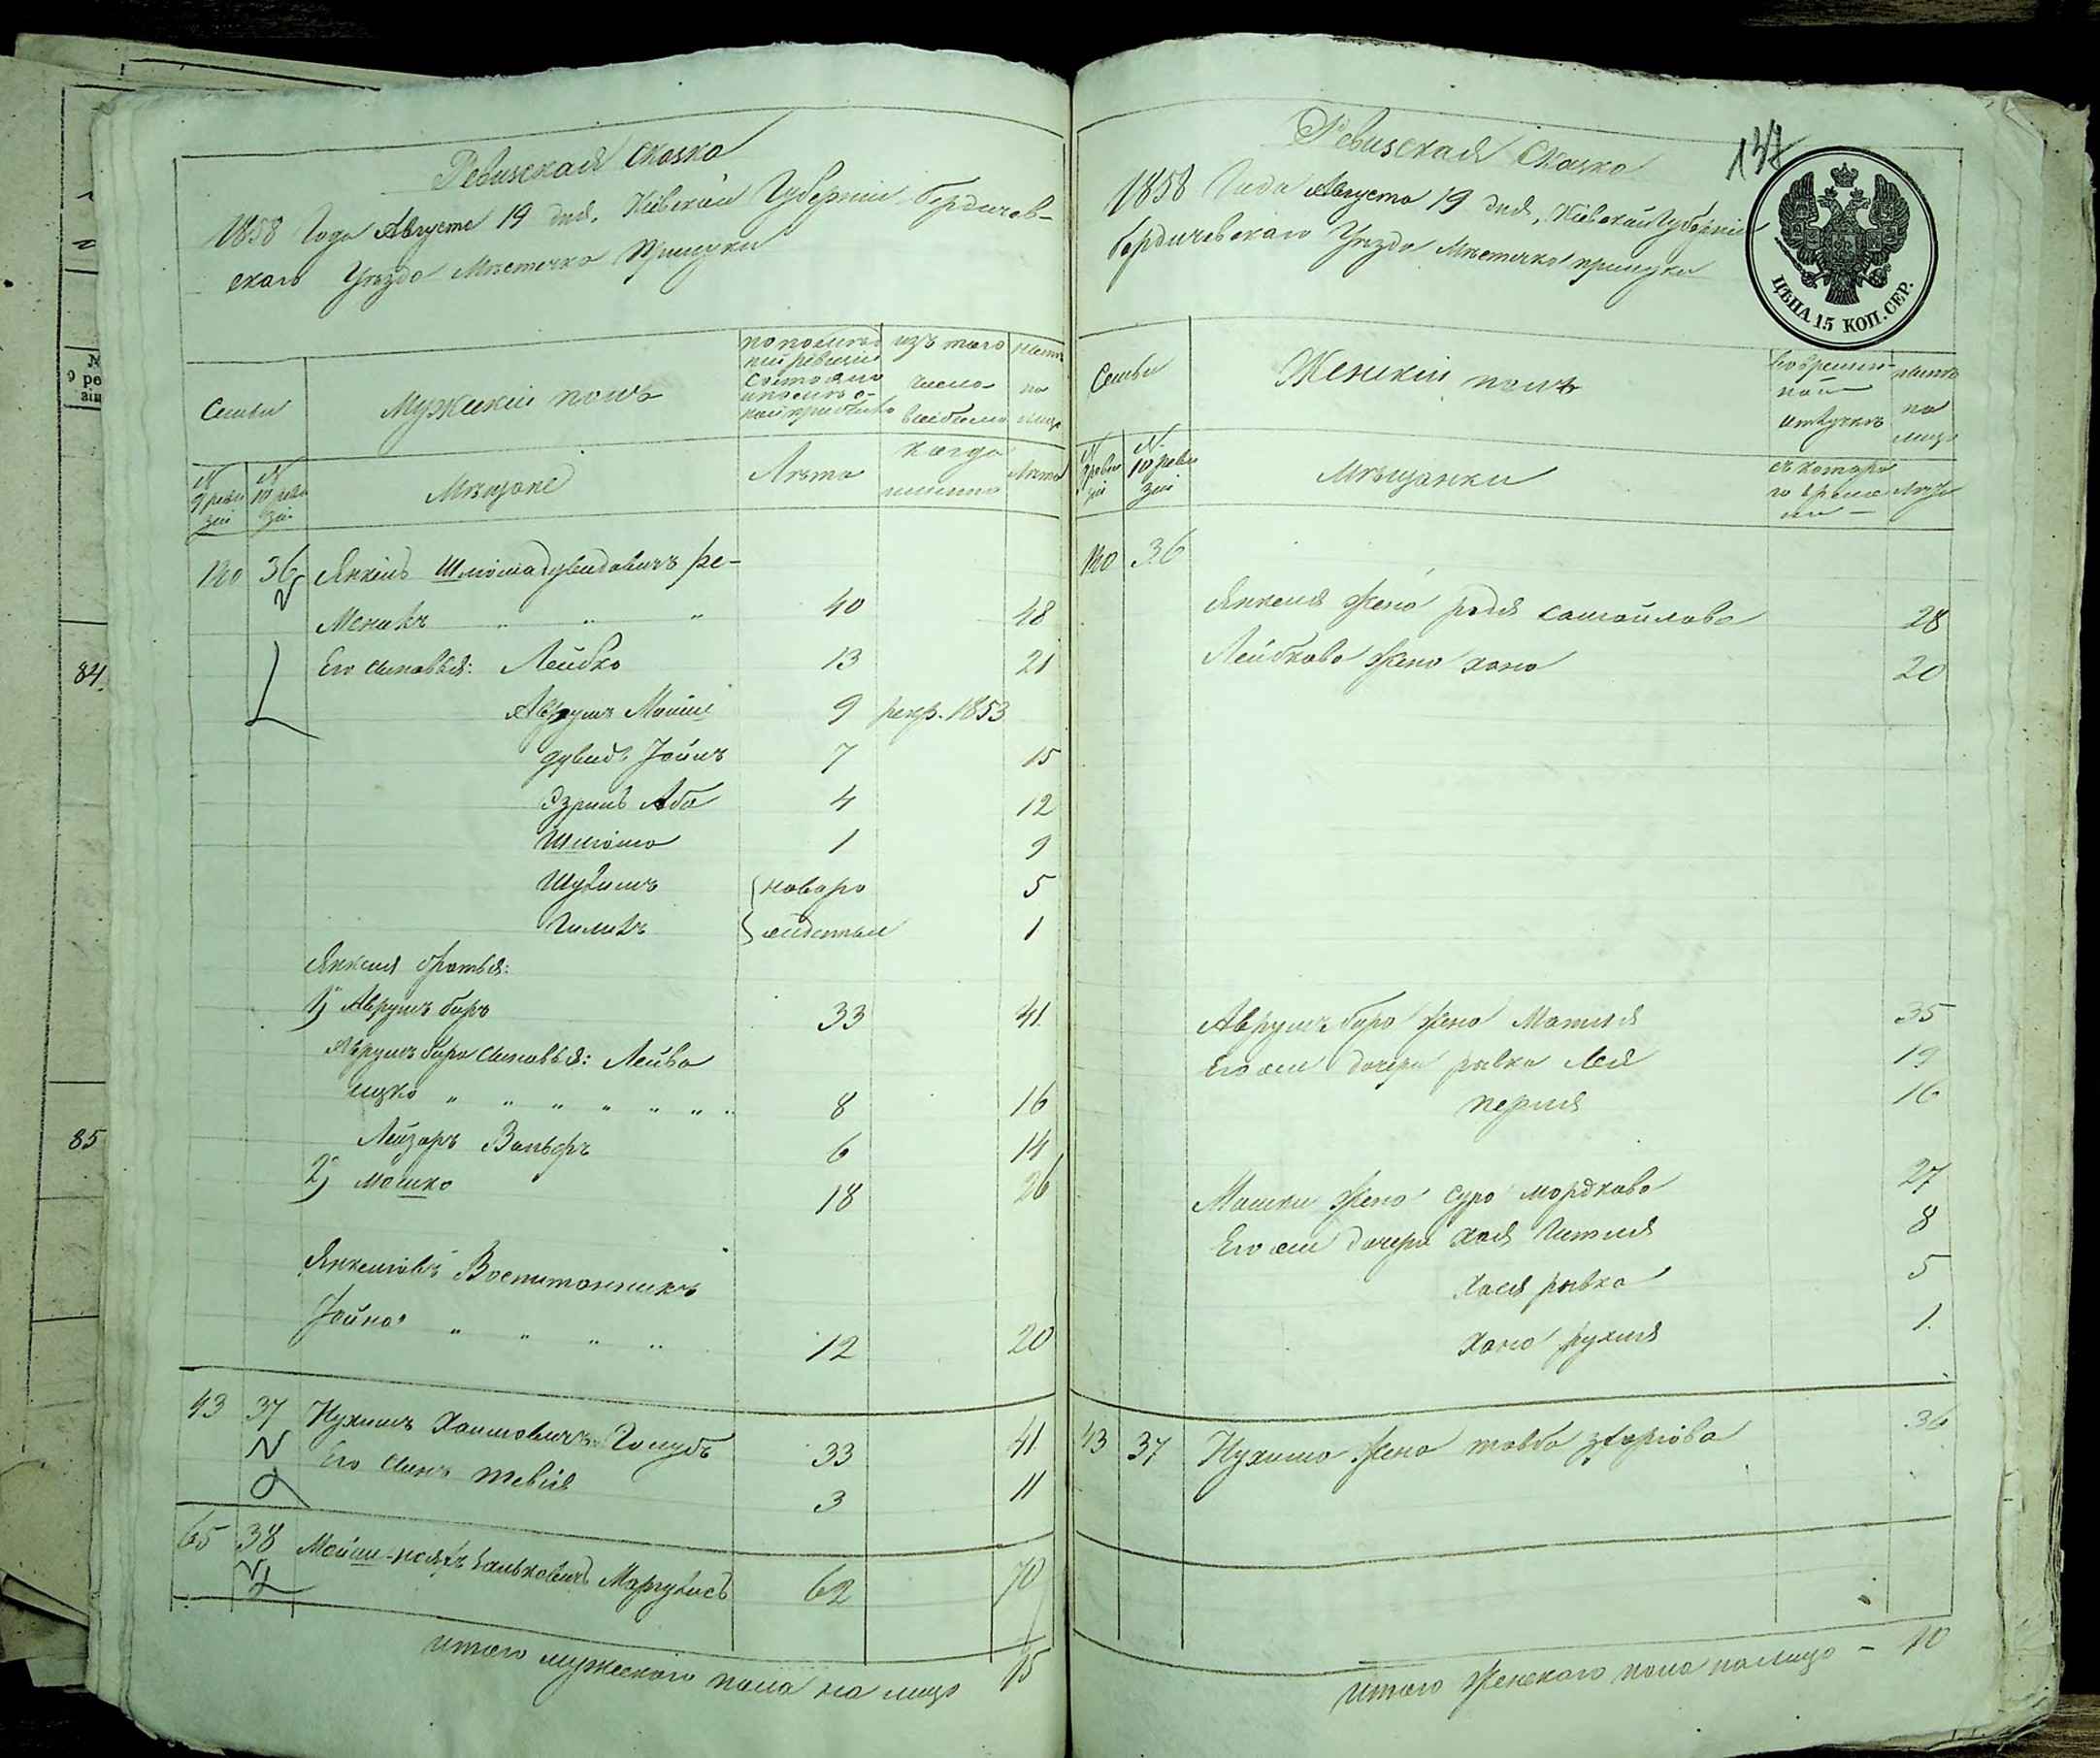 84.
85
9 ре
Ревизская Сказка
1858 Года Августа 19 дня, Кіевской Губерніи Бердичев-
скаго Уѣзда Мѣстечка Прилуки
Семьи
Мужескій полъ
по послѣд
ней ревизіи
состояло
и послѣ о-
ной прибыло
изъ того
числа
выбыло
налицо
Лѣта
когда
именно
Лѣта
№ 9 ревизіи
№ 10 ревизіи
Мѣщане
140 36 Янкель Шлiома Дувидовичъ Ре-
меникъ " " " 40 48
Его сыновья: Лейбко 13 21
Аврумъ Мойше 9 рекр. 1853
Дувидъ Іойнъ 7 15
Эзриль Аба 4 12
Шліома 1 9
Шулимъ новоро 5
Гиликъ жденные 1
Янкеля братья:
1) Аврумъ Беръ 33 41.
Аврумъ Бера сыновья: Лейба
Ицко " " " " " " " 8 16
Лейзоръ Вольфъ 6 14
2) Мошко 18 26
Янкелiовъ Воспитанникъ
Іойна " " " " 12 20
43 37 Нухимъ Хаимовичъ Голубъ 33 41
Его сынъ Тевія 3 11
65 38 Мойше-Іосякъ Ганьковичъ Маргулисъ 62 70
Итого мужескаго пола на лицо 15
137
Ревизская Сказка
1858 Года Августа 19 дня, Кіевской Губерніи
Бердичевскаго Уѣзда Мѣстечка Прилуки
ЦѢНА 15 КОП. СЕР.
Семьи
Женскій полъ
Во времен-
ной
отлучкѣ
налицо
№ 9 ревизіи
№ 10 ревизіи
Мѣщанки
съ котора
го време
ни —
Лѣта
140 36
Янкеля жена Рося Самойлова 28
Лейбкова жена Хана 20
Аврумъ Бера жена Матля 35
Его же дочери Рывка Лея 19
Перля 16
Мошки жена Сура Мордкова 27
Его же дочери Хая Гитля 8
Хася Рывка 5
Хана Рухля 1.
43 37 Нухима жена Товба 36
Итого Женскаго пола налицо — 10